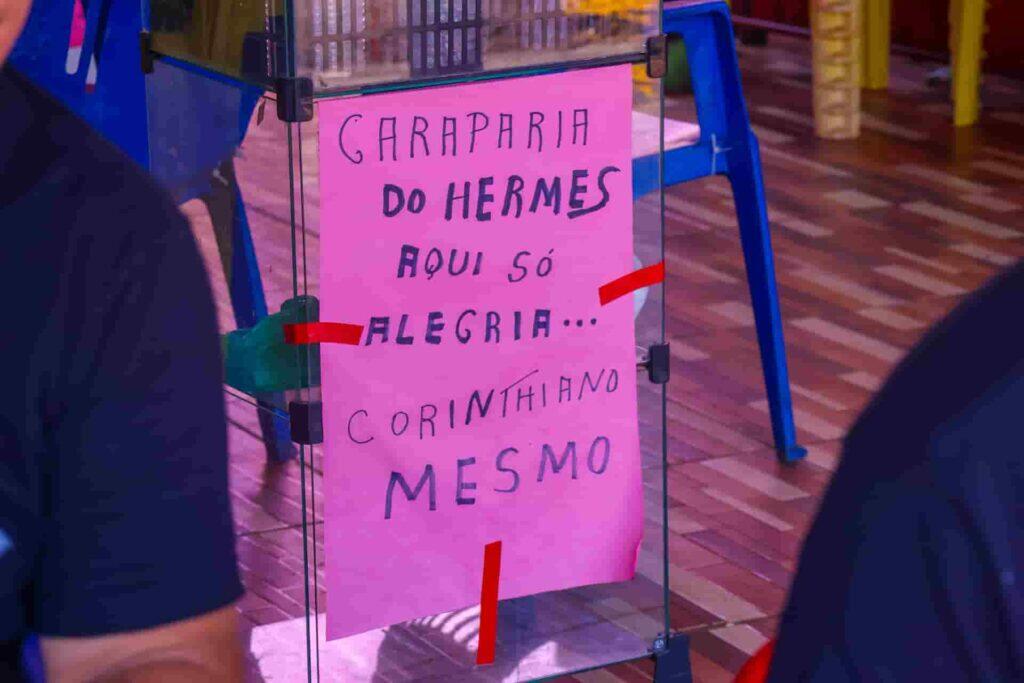 CARAPARIA
DO HERMES
AQUI SÓ
ALEGRIA...
CORINTHIANO
MESMO